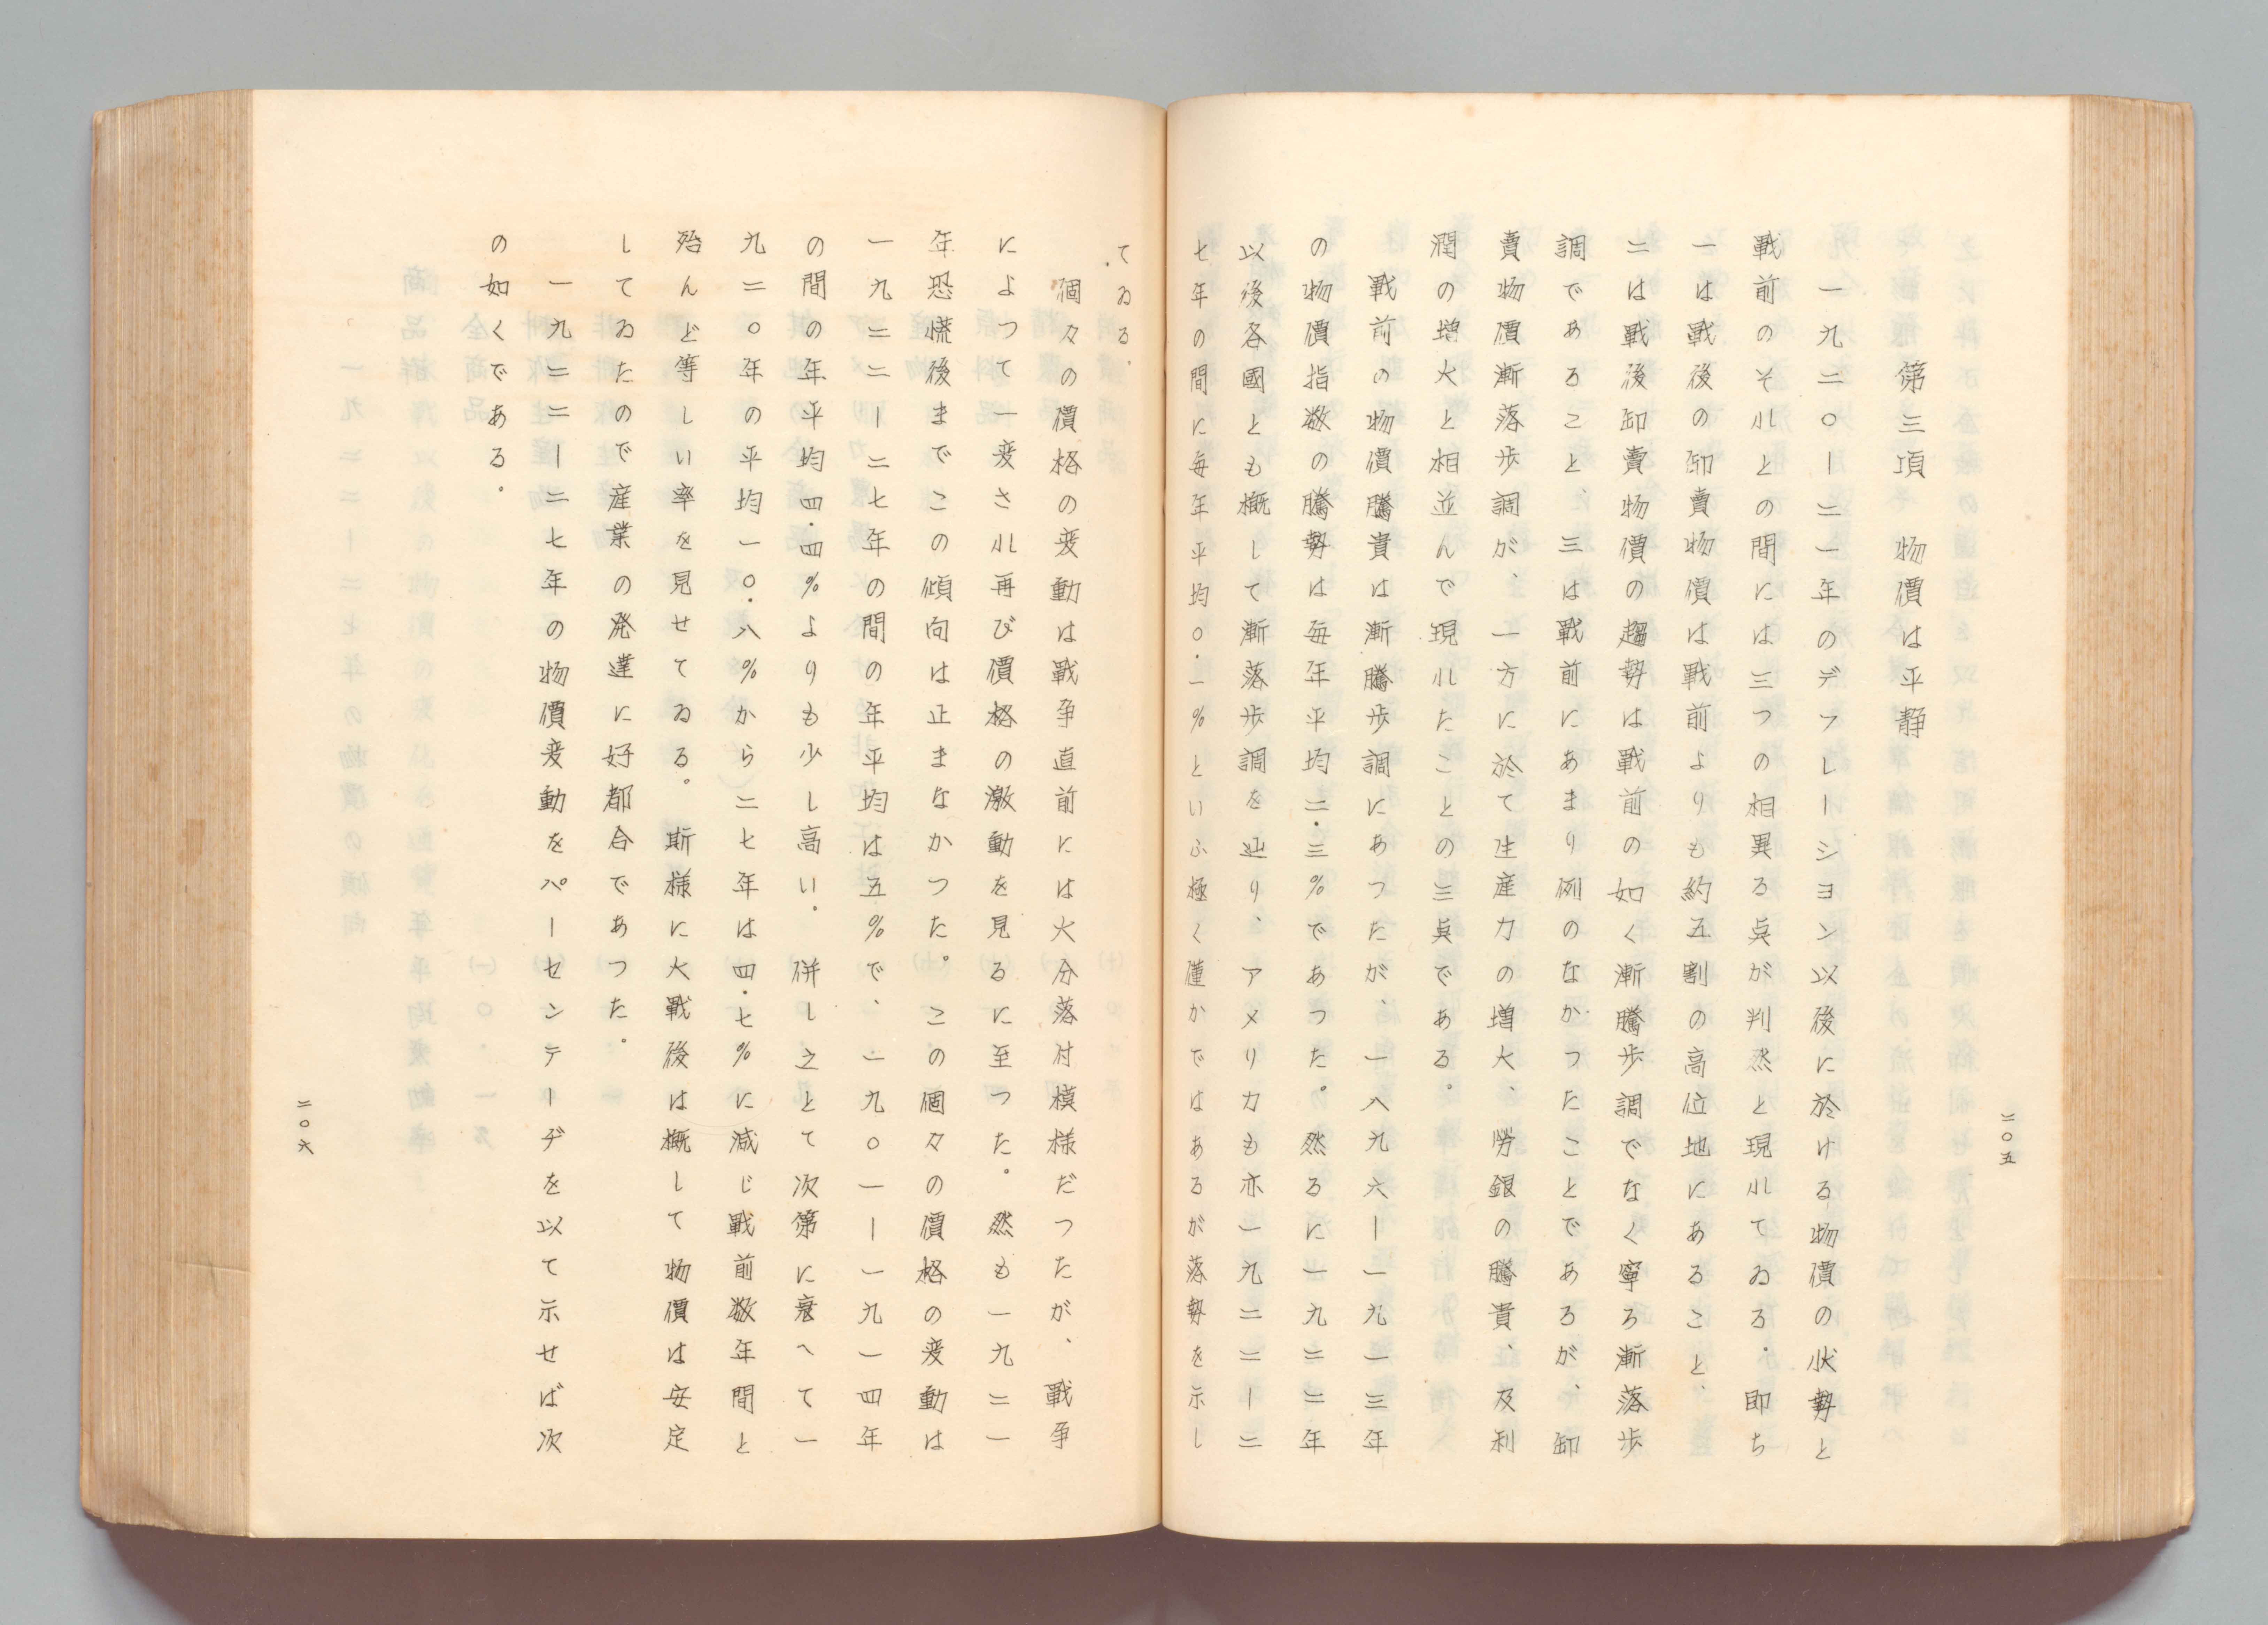 二〇五
第三項　物價は平靜
一九二〇ー二一年のデフレーション以後に於ける物價の状勢と
戰前のそれとの間には三つの相異る点が判然と現れてゐる。即ち
一は戰後の卸賣物價は戰前よりも約五割の高位地にあること、
二は戰後卸賣物價の趨勢は戰前の如く漸騰歩調でなく寧ろ漸落歩
調であること、三は戰前にあまり例のなかつたことであるが、卸
賣物價漸落歩調が、一方に於て生産力の増大、勞銀の騰貴、及利
潤の増大と相並んで現れたことの三点である。
戰前の物價騰貴は漸騰歩調にあつたが、一八九六ー一九一三年
の物價指数の騰勢は毎年平均二・三％であつた。然るに一九二二年
以後各國とも概して漸落歩調を辿り、アメリカも亦一九二二ー二
七年の間に毎年平均〇・一％といふ極く僅かではあるが落勢を示し
てゐる。
個々の價格の変動は戰争直前には大分落付模様だつたが、戰争
によつて一変され再び價格の激動を見るに至つた。然も一九二一
年恐慌後までこの傾向は止まなかつた。この個々の價格の変動は
一九二二ー二七年の間の年平均は五％で、一九〇一ー一九一四年
の間の年平均四・四％よりも少し高い。併し之とて次第に衰へて一
九二〇年の平均一〇・八％から二七年は四・七％に減じ戰前数年間と
殆んど等しい率を見せてゐる。斯様に大戰後は概して物價は安定
してゐたので産業の発達に好都合であつた。
一九二二ー二七年の物價変動をパーセンテーヂを以て示せば次
の如くである。
二〇六